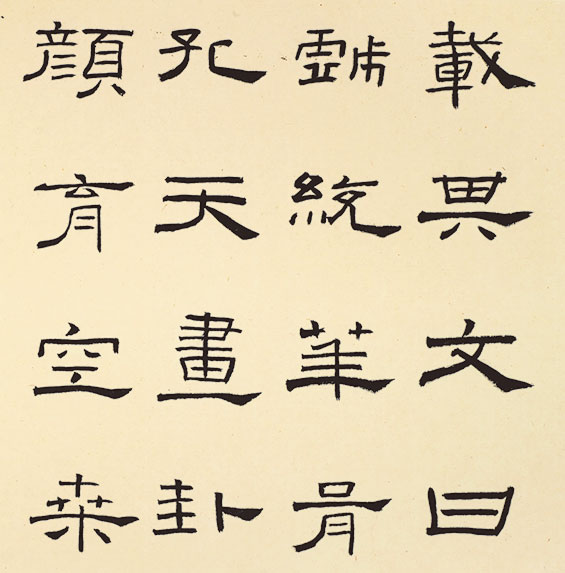 載異文曰
統華胥
孔天畫卦
顏育空桑